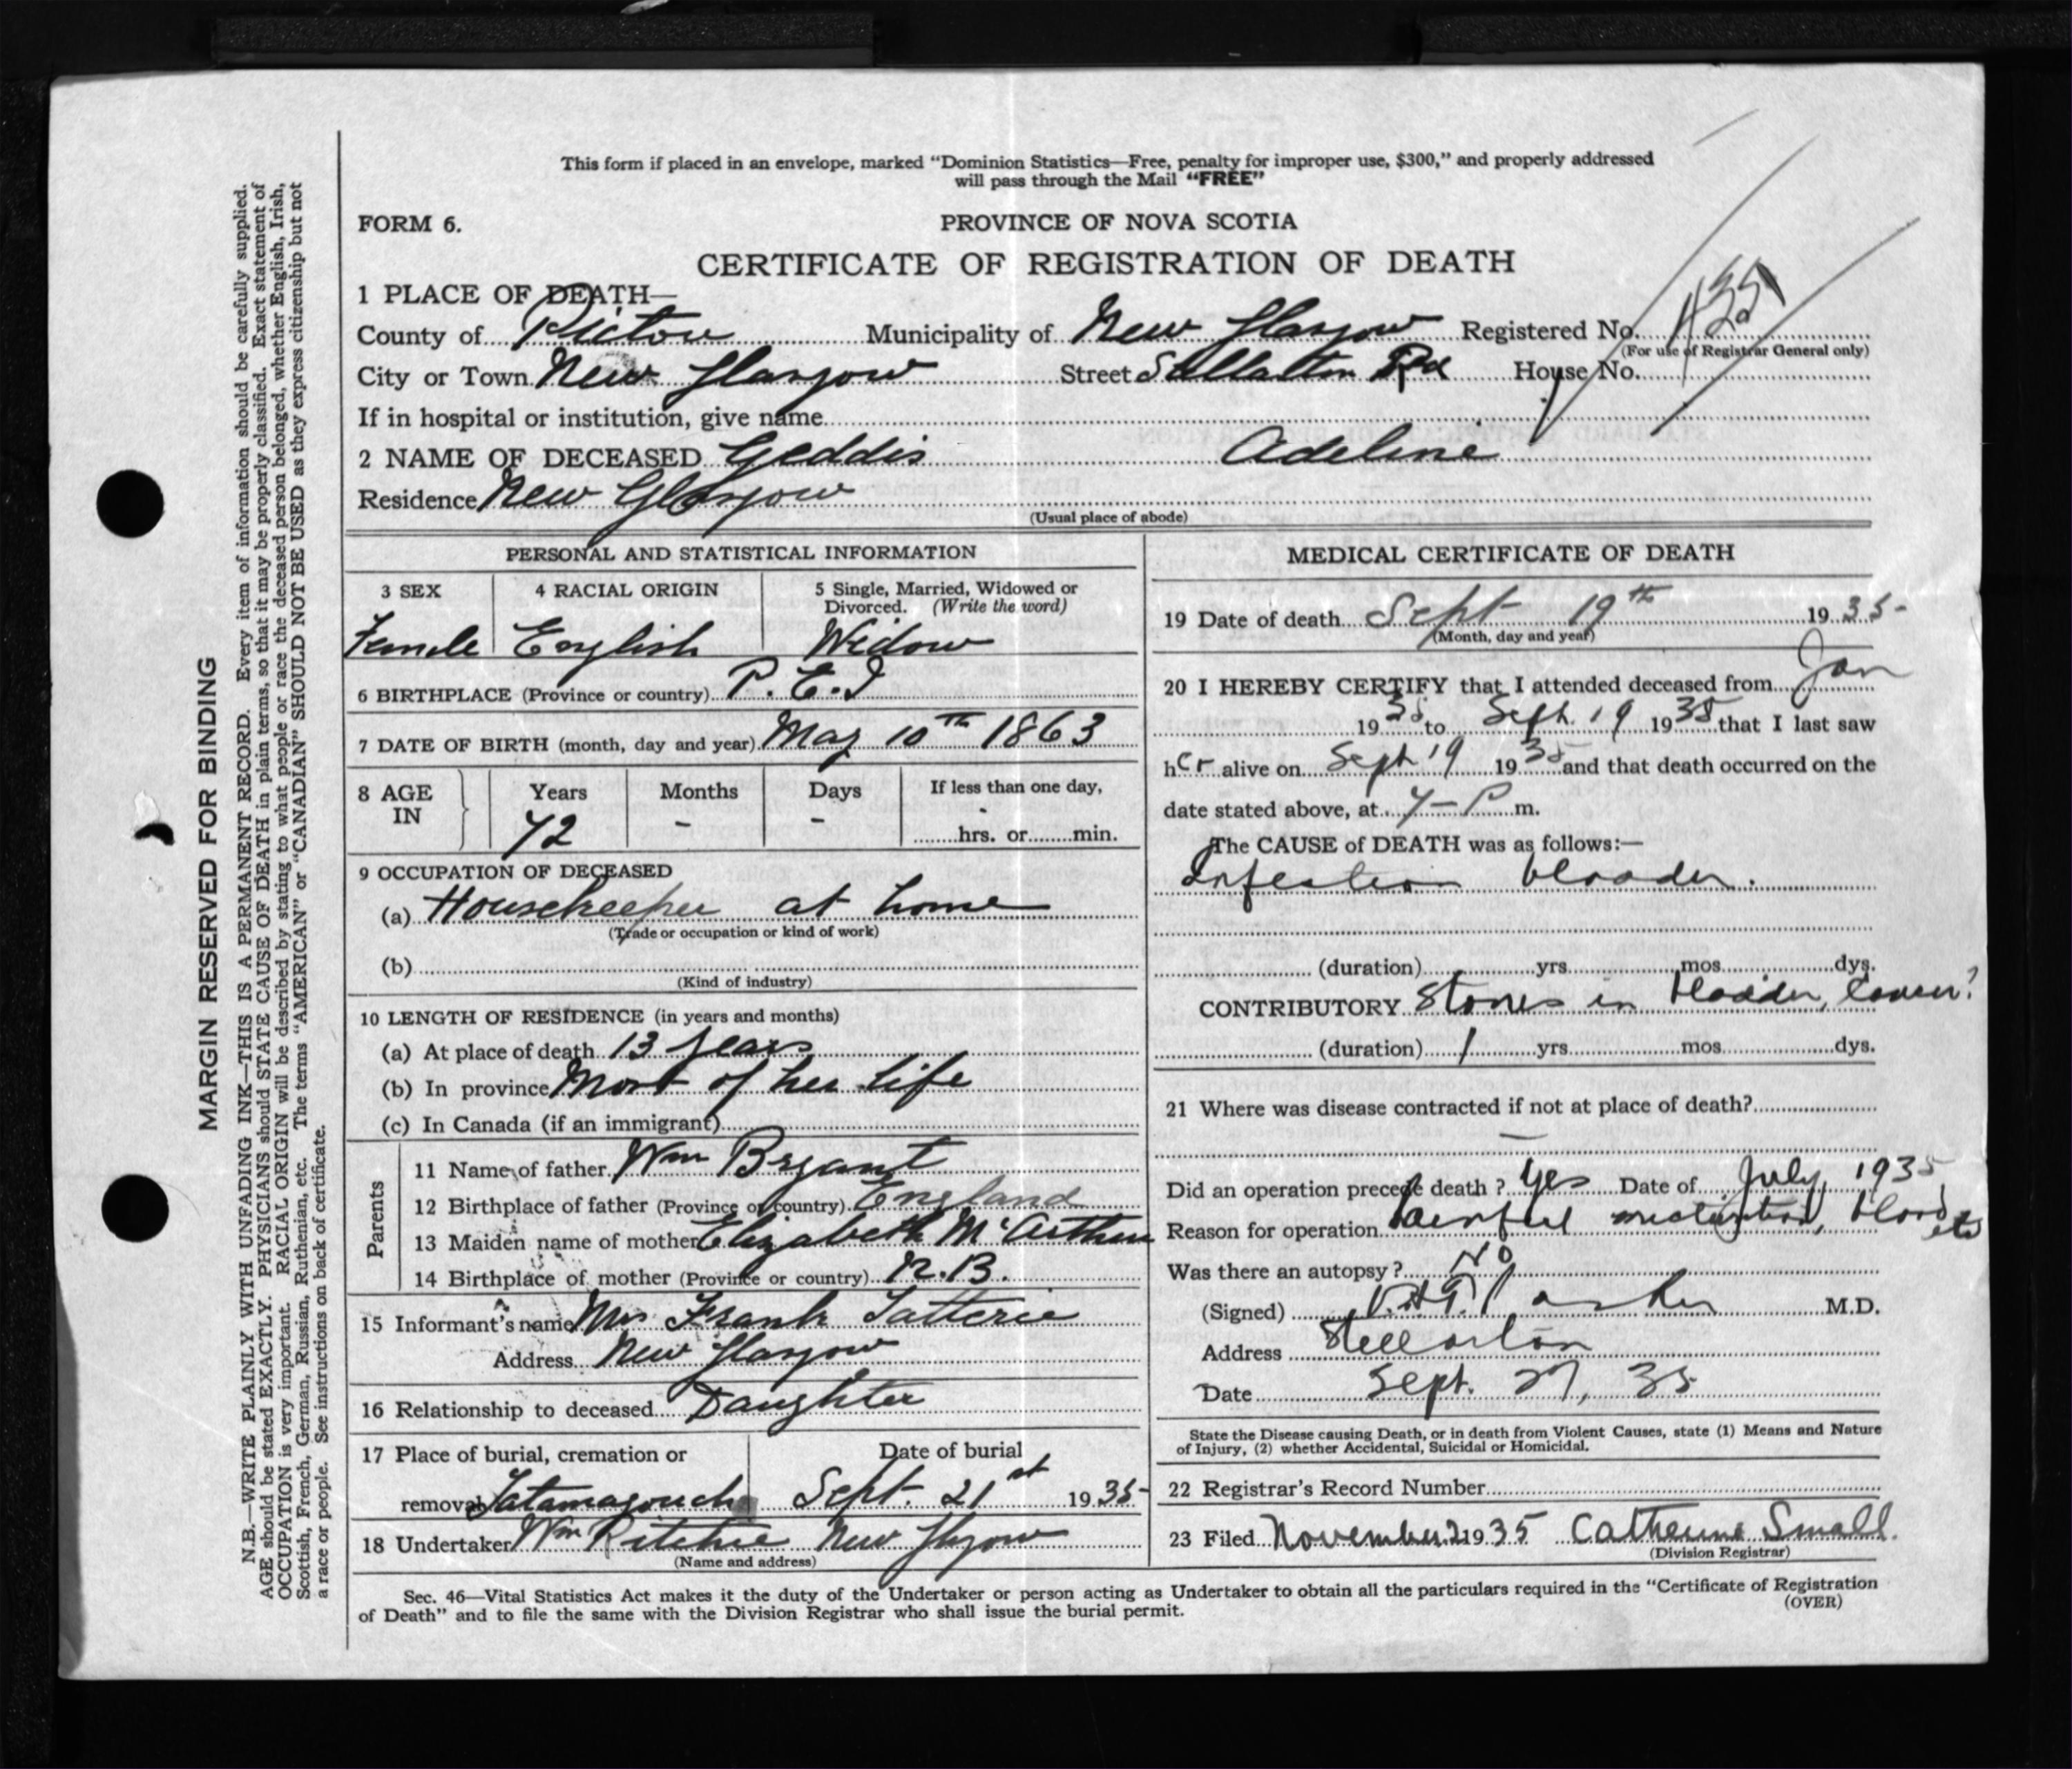 This form if placed in an envelope, marked “Dominion Statistics—Free, penalty for improper use, $300,” and properly addressed
will pass through the Mail “FREE”
FORM 6.
PROVINCE OF NOVA SCOTIA
CERTIFICATE OF REGISTRATION OF DEATH
1 PLACE OF DEATH—
County of Pictou Municipality of New Glasgow Registered No.
(For use of Registrar General only)
City or Town New Glasgow Street Stellarton Rd House No.
If in hospital or institution, give name
2 NAME OF DECEASED Geddis Adeline
Residence New Glasgow
(Usual place of abode)
PERSONAL AND STATISTICAL INFORMATION
3 SEX 4 RACIAL ORIGIN 5 Single, Married, Widowed or
Divorced. (Write the word)
Female English Widow
6 BIRTHPLACE (Province or country) P.E.I
7 DATE OF BIRTH (month, day and year) May 10th 1863
8 AGE IN Years Months Days If less than one day,
72 - - hrs. or min.
9 OCCUPATION OF DECEASED
(a) Housekeeper at home
(Trade or occupation or kind of work)
(b)
(Kind of industry)
10 LENGTH OF RESIDENCE (in years and months)
(a) At place of death 13 years
(b) In province Most of her life
(c) In Canada (if an immigrant)
Parents
11 Name of father Wm Bryant
12 Birthplace of father (Province or country) England
13 Maiden name of mother Elizabeth McArthur
14 Birthplace of mother (Province or country) N.B.
15 Informant's name Mrs Frank Tatterie
Address New Glasgow
16 Relationship to deceased Daughter
17 Place of burial, cremation or Date of burial
removal Tatamagouche Sept. 21st 1935
18 Undertaker Wm Ritchie New Glasgow
(Name and address)
MEDICAL CERTIFICATE OF DEATH
19 Date of death Sept 19th 1935
(Month, day and year)
20 I HEREBY CERTIFY that I attended deceased from Jan
1935 to Sept. 19 1935 that I last saw
her alive on Sept 19 1935 and that death occurred on the
date stated above, at 7 – P m.
The CAUSE of DEATH was as follows:—
Infection bladder.
(duration) yrs. mos. dys.
CONTRIBUTORY Stones in bladder, Cancer?
(duration) 1 yrs. mos. dys.
21 Where was disease contracted if not at place of death?
—
Did an operation precede death? Yes Date of July, 1935
Reason for operation Painful micturition, blood etc
Was there an autopsy? No
(Signed) M.D.
Address Stellarton
Date Sept. 27, 35
State the Disease causing Death, or in death from Violent Causes, state (1) Means and Nature
of Injury, (2) whether Accidental, Suicidal or Homicidal.
22 Registrar's Record Number
23 Filed November 2 1935 Catherine Small.
(Division Registrar)
Sec. 46—Vital Statistics Act makes it the duty of the Undertaker or person acting as Undertaker to obtain all the particulars required in the “Certificate of Registration
of Death” and to file the same with the Division Registrar who shall issue the burial permit.
(OVER)
MARGIN RESERVED FOR BINDING
N.B.—WRITE PLAINLY WITH UNFADING INK—THIS IS A PERMANENT RECORD. Every item of information should be carefully supplied.
AGE should be stated EXACTLY. PHYSICIANS should STATE CAUSE OF DEATH in plain terms, so that it may be properly classified. Exact statement of
OCCUPATION is very important. RACIAL ORIGIN will be described by stating to what people or race the deceased person belonged, whether English, Irish,
Scottish, French, German, Russian, Ruthenian, etc. The terms “AMERICAN” or “CANADIAN” SHOULD NOT BE USED as they express citizenship but not
a race or people. See instructions on back of certificate.